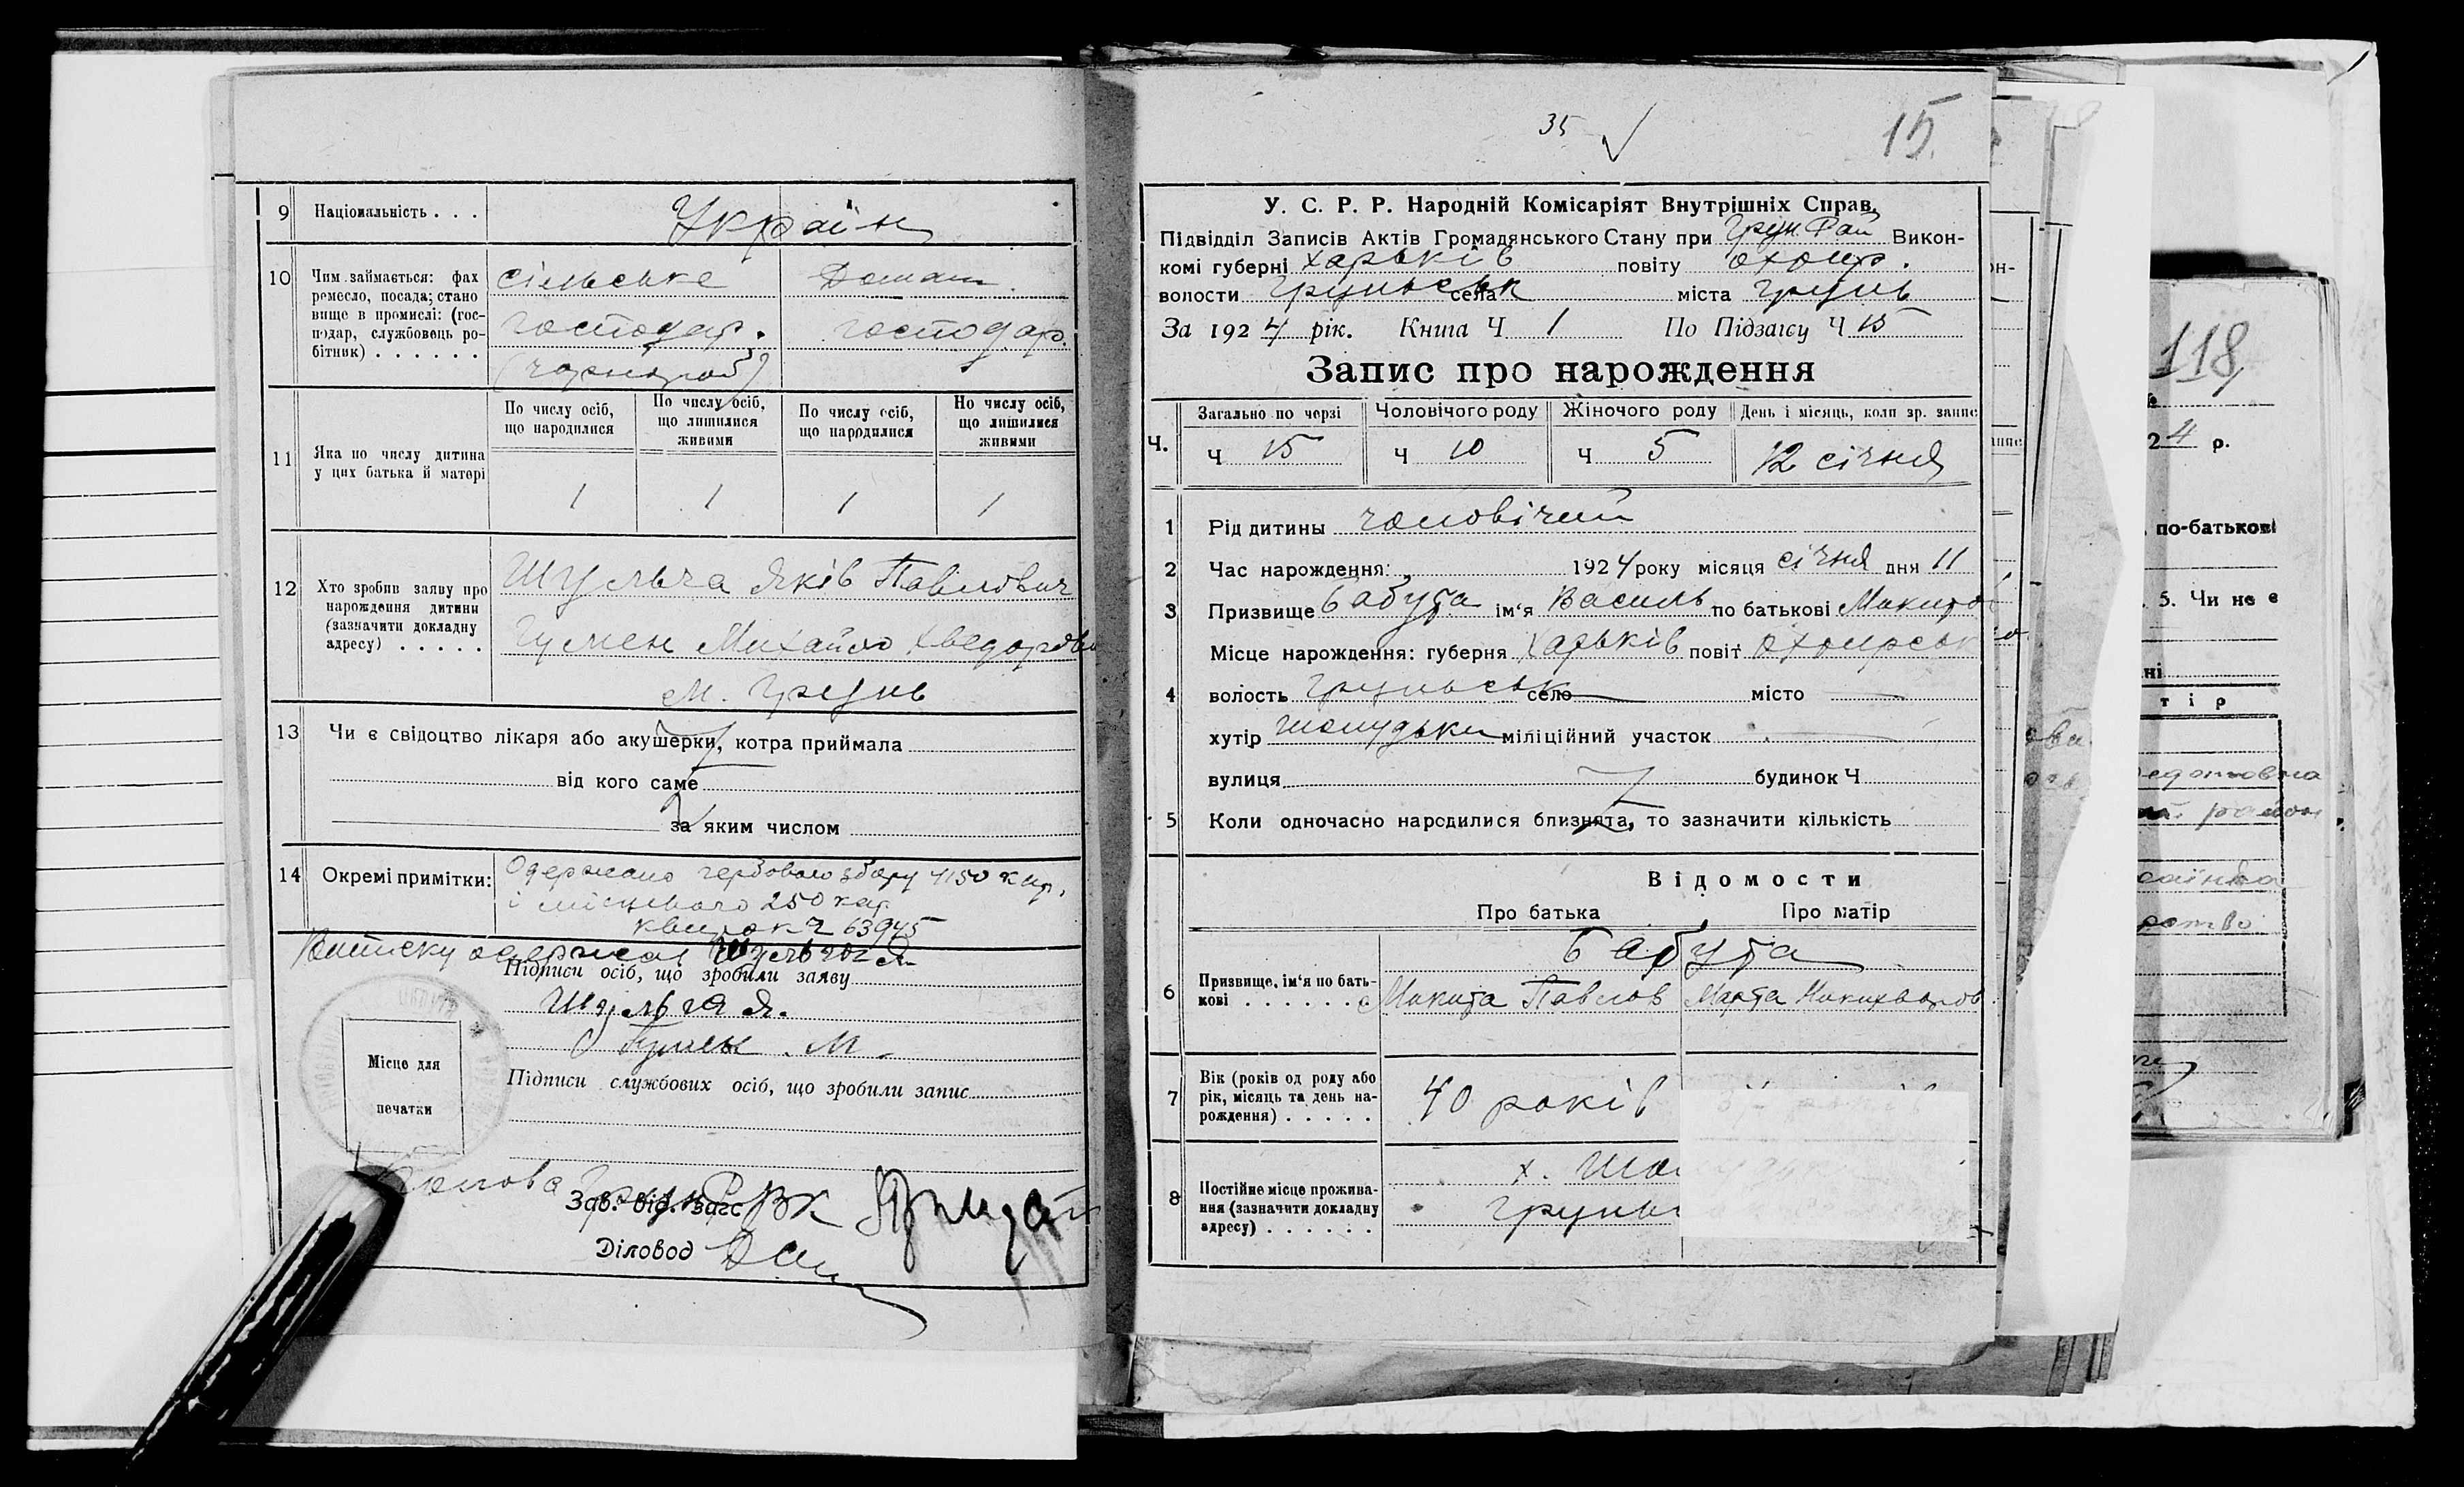 9 Національність . . .
Україн
10 Чим займається: фах
ремесло, посада; стано
вище в промислі: (гос-
подар, службовець ро-
бітник) . . . . . .
сільське
господар.
(чорнороб)
Домашн.
господар.
11 Яка по числу дитина
у цих батька й матері
По числу осіб,
що народилися
По числу осіб,
що лишилися
живими
По числу осіб,
що народилися
По числу осіб,
що лишилися
живими
1 1 1 1
12 Хто зробив заяву про
нарождення дитини
(зазначити докладну
адресу) . . . . .
Шульга Яків Павлович
Гумен Михайло Хведорови
м. Грунь
13 Чи є свідоцтво лікаря або акушерки, котра приймала
від кого саме
за яким числом
14 Окремі примітки:
Одержано гербового збору 4150 кар,
і місцевого 250 кар
квиток Ч 63945
Виписку одержав Шульга Я
Підписи осіб, що зробили заяву
Шульга Я.
Гумен М.
Місце для
печатки
Підписи службових осіб, що зробили запис
Голова Грун РВК
Зав. від. загс
Діловод
35 15.
У. С. Р. Р. Народній Комісаріят Внутрішніх Справ.
Підвідділ Записів Актів Громадянського Стану при Грун. Рай Викон-
комі губерні Харьків повіту Охтир.
волости Груньськ села міста Грунь
За 1924 рік. Книга Ч 1 По Підзагсу Ч 15
Запис про народження
Ч. Загально по черзі Чоловічого роду Жіночого роду День і місяць, коли зр. запис
Ч 15 Ч 10 Ч 5 12 січня
1 Рід дитины чоловічий
2 Час нарождення: 1924 року місяця січня дня 11
3 Призвище Бабута ім'я Василь по батькові Микито
4 Місце нарождення: губерня Харьків повіт Охтирськ
волость Груньськ село місто
хутір міліційний участок
вулиця будинок Ч
5 Коли одночасно народилися близнята, то зазначити кількість
Відомости
Про батька Про матір
6 Призвище, ім'я по бать-
кові . . . . . . .
Бабута
Микита Павлов Марта Никихворов
7 Вік (років од роду або
рік, місяць та день на-
рождення) . . . . .
40 років
8 Постійне місце прожива-
ння (зазначити докладну
адресу) . . . . . .
х.
118
24 р.
по-батькові
5. Чи не є
тір